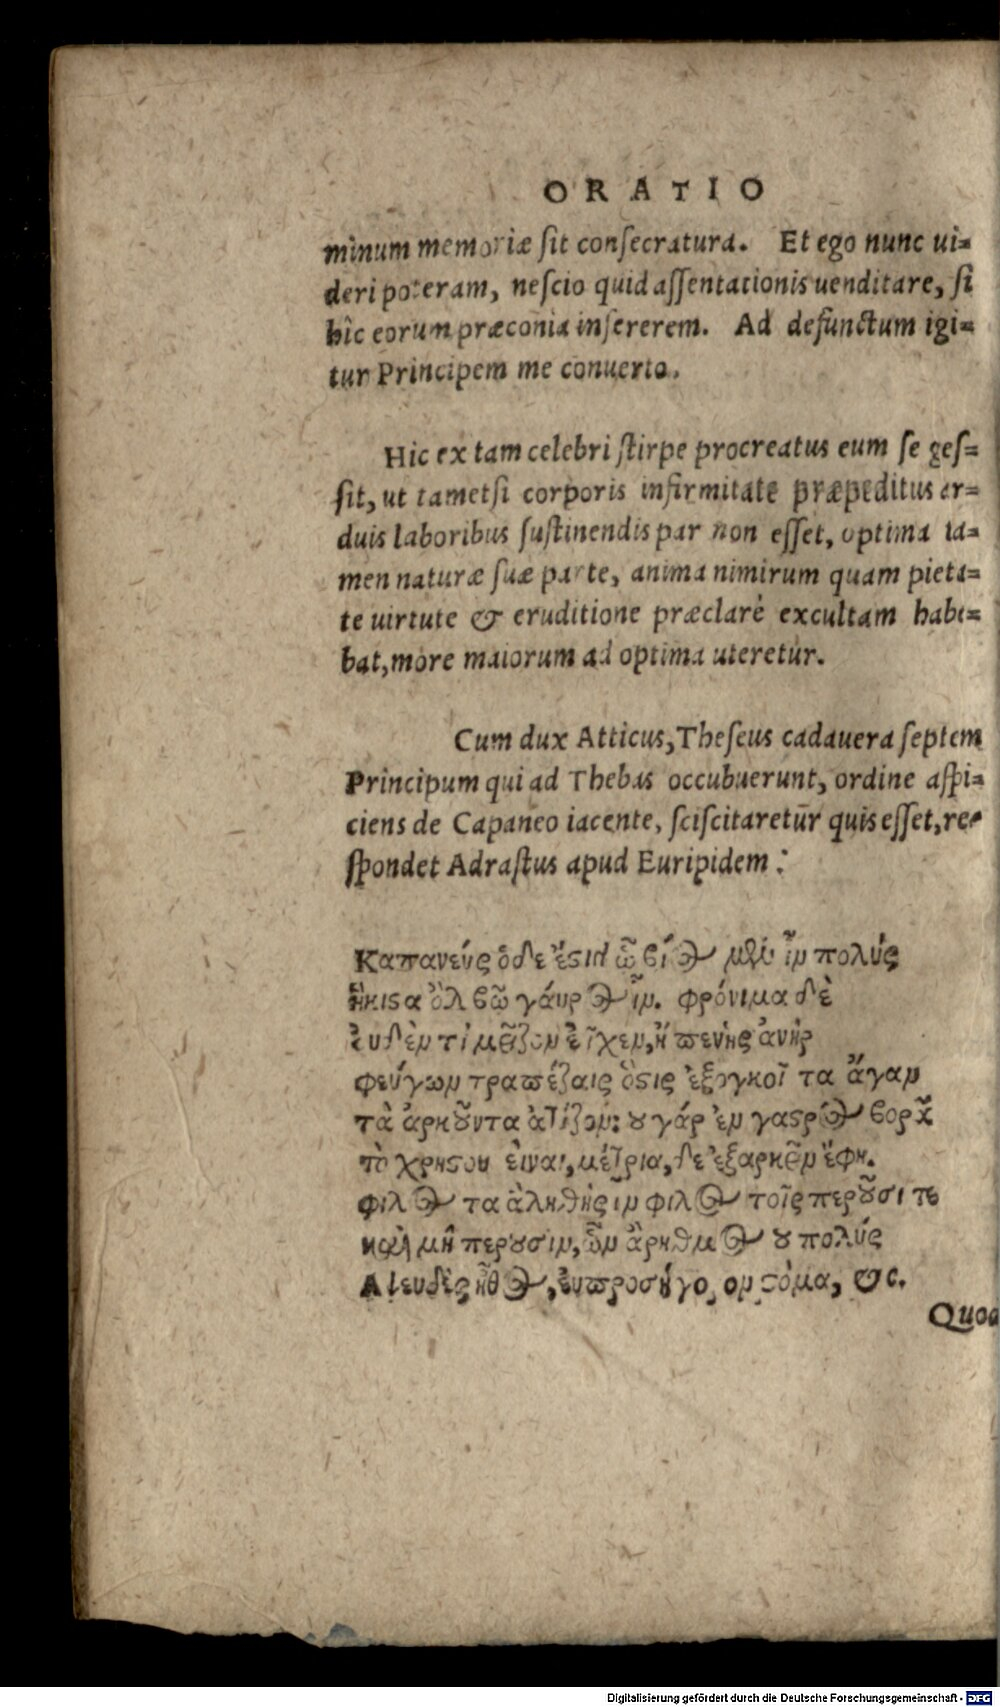 ORATIO
minum memoriæ ſit conſecratura. Et ego nunc ui=
deri poteram, neſcio quid aſſentationis uenditare, ſi
hîc eorum præconia inſererem. Ad defunctum igi=
tur Principem me conuerto.
Hic ex tam celebri ſtirpe procreatus eum ſe geſ=
ſit, ut tametſi corporis infirmitate præpeditus ar=
duis laboribus ſuſtinendis par non eſſet, optima ta=
men naturæ ſuæ parte, anima nimirum quam pieta=
te uirtute & eruditione præclarè excultam habe=
bat, more maiorum ad optima uteretur.
Cum dux Atticus, Theſeus cadauera ſeptem
Principum qui ad Thebas occubuerunt, ordine aſpi=
ciens de Capaneo iacente, ſciſcitaretur quis eſſet, re=
ſpondet Adraſtus apud Euripidem:
Καπανεύς ὅδε ἔϛιν ὧ βί<span></span>ος μὲν ἦν πολύς
ἥκιϛα ὄλβῳ γάυρος ἦν. φρόνιμα δὲ
ἐυδὲν τὶ μεῖζον εἶχεν, ἢ πενὴς ἀνὴρ
φεύγων τραπέζαις ὅϛις ἐξογκοῖ τα ἄγαν
τὰ ἀρκοῦντα ἀτίζων: ου γάρ ἐν γαϛρὸς βορᾶ
τὸ χρηϛον ἐιναι, μέτρια, δε ἐξαρκεῖν ἔφη.
φιλος τα ἀληθὴς ἦν φιλος τοῖς περοῦσι τε
καὶ μὴ περουσιν, ὧν ἀρηθμος ου πολύς
Αψευδὲς ἦθος, ἐυπροσήγορον ϛόμα, &c.
Quod
Digitalisierung gefördert durch die Deutsche Forschungsgemeinschaft - DFG